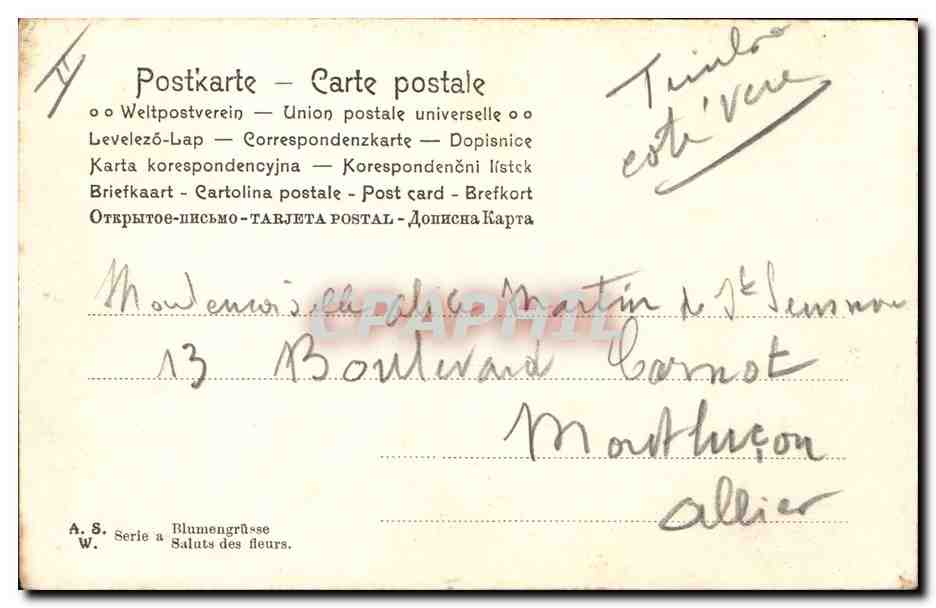 II
Postkarte – Carte postale
Weltpostverein — Union postale universelle
Levelező-Lap — Correspondenzkarte — Dopisnice
Karta korespondencyjna — Korespondenční lístek
Briefkaart - Cartolina postale - Post card - Brefkort
Открытое-письмо - TARJETA POSTAL - Дописна Карта
Timbre
coté vere
Mademoiselle Alice Martin de St
CPAPHIL
13 Boulevard Carnot
Montluçon
Allier
A. S. W. Serie a Blumengrüsse
Saluts des fleurs.